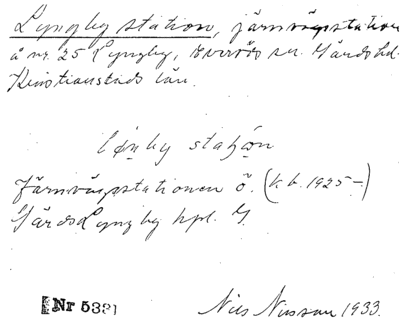 Lyngby station, järnvägsstation
å nr. 25 Lyngby, Everöds sn. Gärds hd.
Kristianstads län.
løŋby staʃon
Järnvägsstationen ö. (k.b. 1925–)
Gärds Lyngby hpl. G
[Nr 533]
Nils Nilsson 1933.